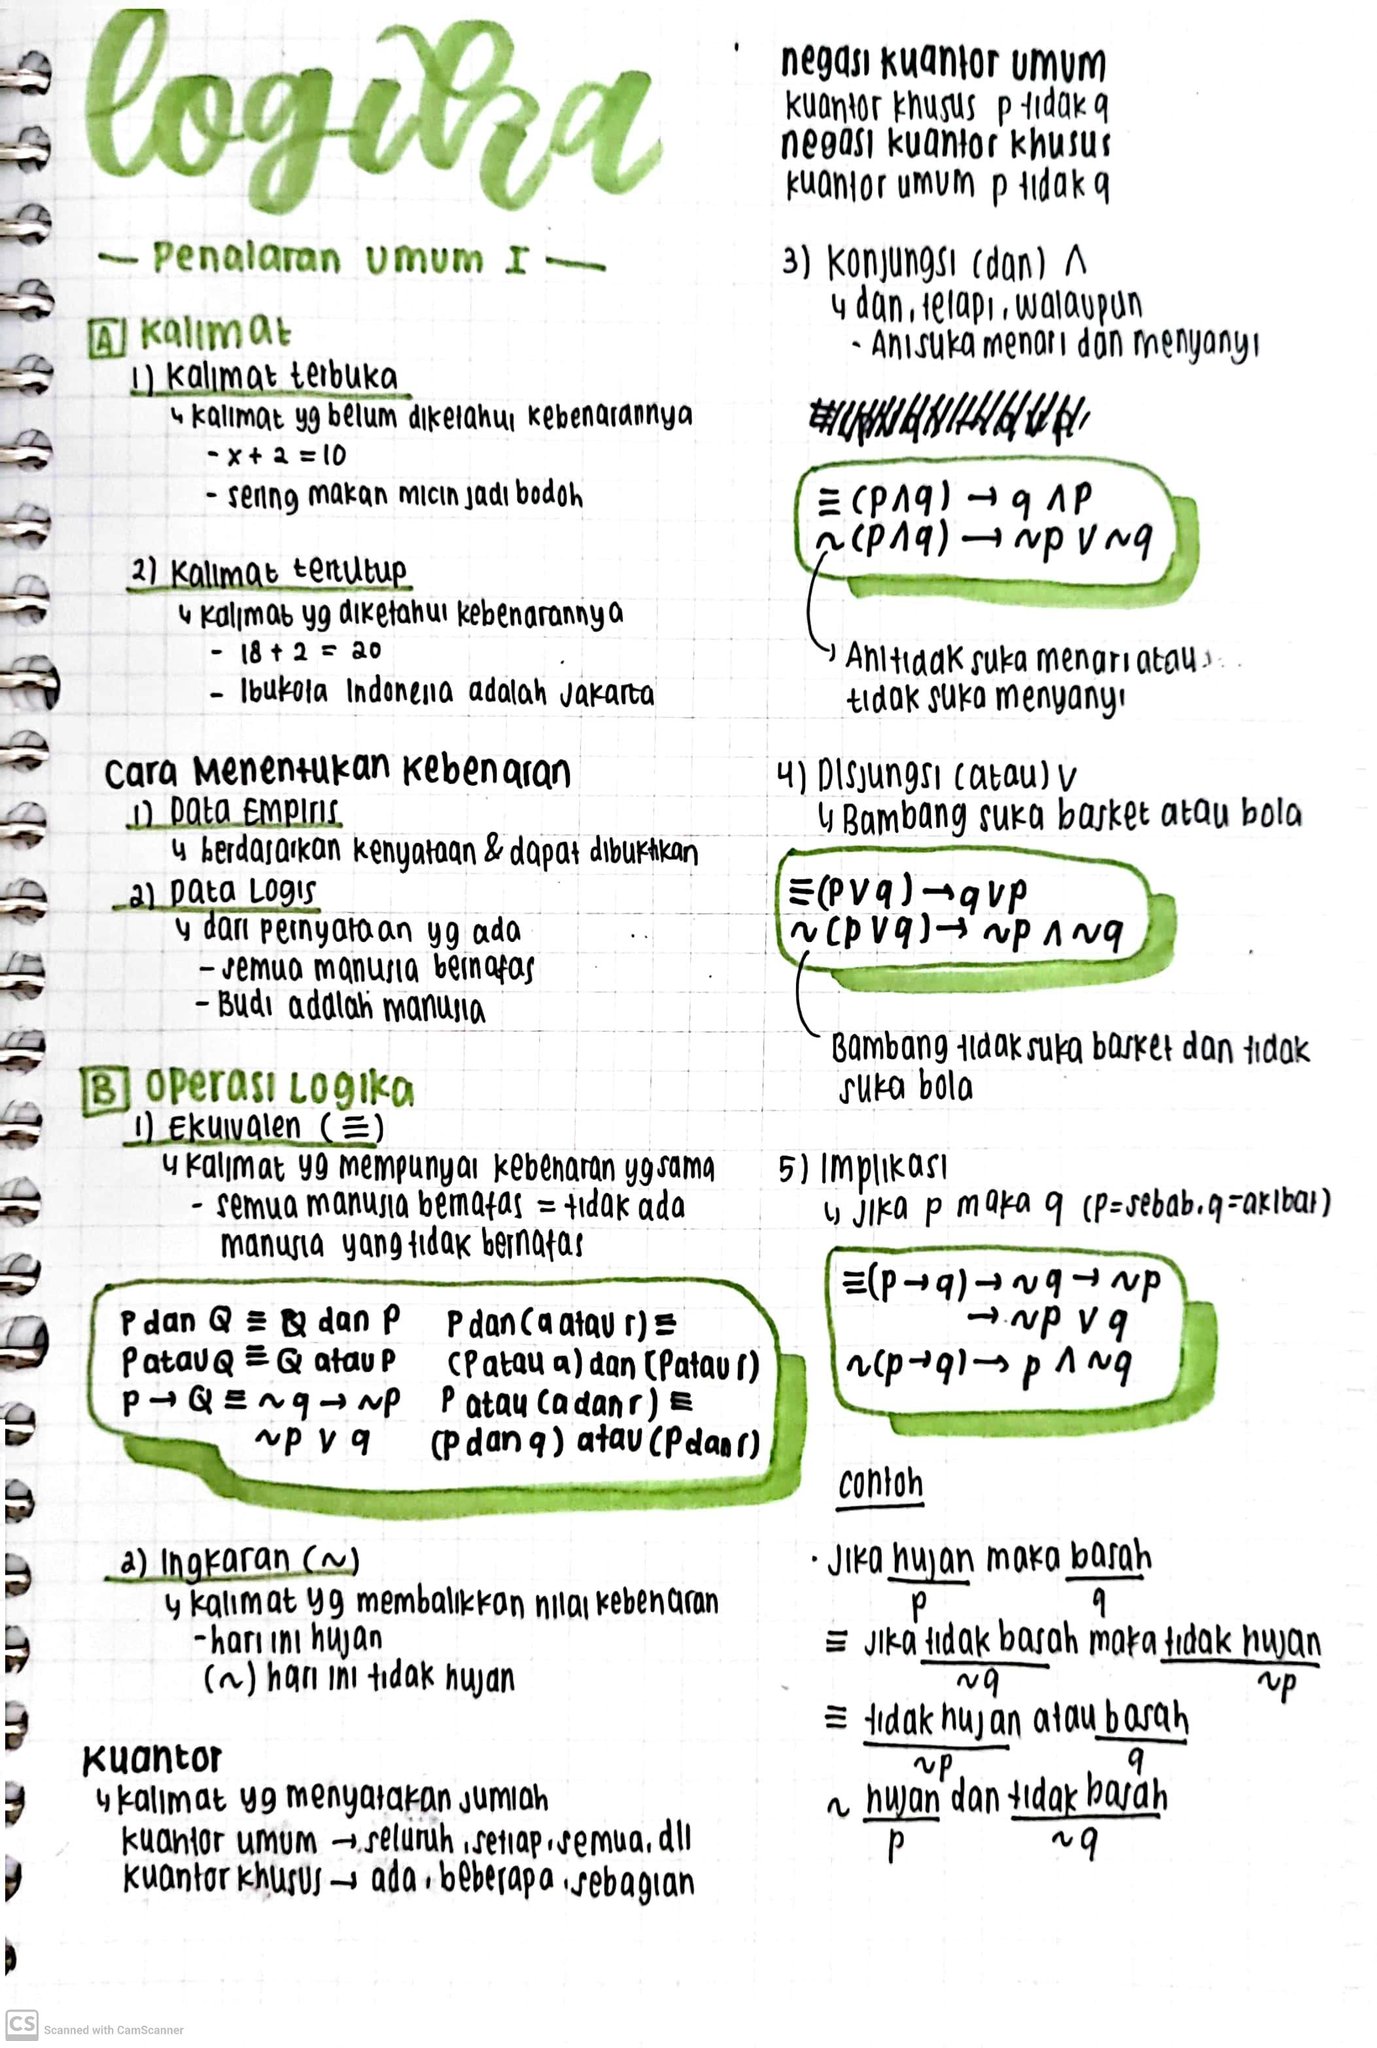 logika
— Penalaran Umum I —
A Kalimat
1) Kalimat terbuka
↳ kalimat yg belum diketahui kebenarannya
- x + 2 = 10
- sering makan micin jadi bodoh
2) Kalimat tertutup
↳ kalimat yg diketahui kebenarannya
- 18 + 2 = 20
- Ibukota Indonesia adalah Jakarta
Cara Menentukan Kebenaran
1) Data Empiris
↳ berdasarkan kenyataan & dapat dibuktikan
2) Data Logis
↳ dari pernyataan yg ada
- semua manusia bernafas
- Budi adalah manusia
B Operasi Logika
1) Ekuivalen (≡)
↳ kalimat yg mempunyai kebenaran yg sama
- semua manusia bernafas = tidak ada
manusia yang tidak bernafas
P dan Q ≡ Q dan P
P atau Q ≡ Q atau P
P → Q ≡ ~q → ~P
~P ∨ q
P dan (a atau r) ≡
(P atau a) dan (P atau r)
P atau (a dan r) ≡
(P dan q) atau (P dan r)
2) Ingkaran (~)
↳ kalimat yg membalikkan nilai kebenaran
- hari ini hujan
(~) hari ini tidak hujan
Kuantor
↳ kalimat yg menyatakan jumlah
kuantor umum → seluruh, setiap, semua, dll
kuantor khusus → ada, beberapa, sebagian
negasi kuantor umum
kuantor khusus p tidak q
negasi kuantor khusus
kuantor umum p tidak q
3) Konjungsi (dan) ∧
↳ dan, tetapi, walaupun
- Ani suka menari dan menyanyi
≡ (P∧q) → q ∧ P
~(P∧q) → ~p ∨ ~q
Ani tidak suka menari atau
tidak suka menyanyi
4) Disjungsi (atau) ∨
↳ Bambang suka basket atau bola
≡(P ∨ q) → q ∨ p
~(p ∨ q) → ~p ∧ ~q
Bambang tidak suka basket dan tidak
suka bola
5) Implikasi
↳ Jika p maka q (P=sebab, q=akibat)
≡(P → q) → ~q → ~p
→ ~p ∨ q
~(p → q) → p ∧ ~q
contoh
· Jika hujan maka basah
p q
≡ Jika tidak basah maka tidak hujan
~q ~p
≡ tidak hujan atau basah
~p q
~ hujan dan tidak basah
p ~q
CS Scanned with CamScanner